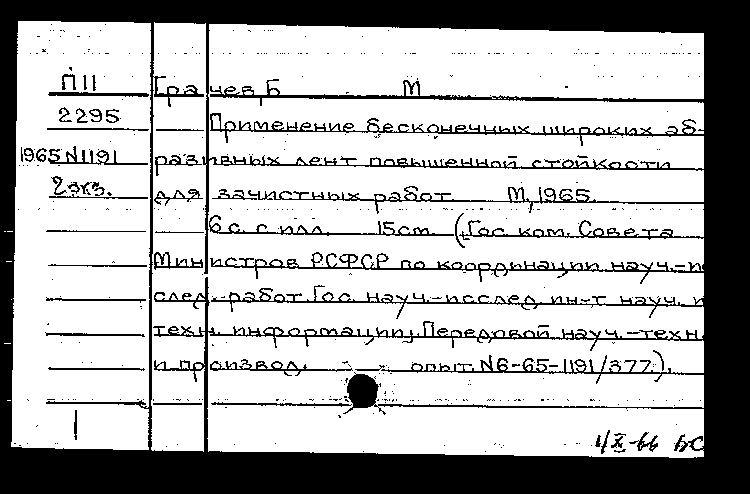 П11 Грачев, Б М
2295 Применение бесконечных широких аб-
1965 N1191 разивных лент повышенной стойкости
2 экз. для зачистных работ М, 1965.
6 с. с илл. 15 см. (Гос. ком. Совета
Министров РСФСР по координации науч.-и
след. работ. Гос. науч.-исслед. ин-т науч. и
техн. информации. Передовой науч.-техн.
и производ. опыт. N6-65-1191/377).
1
1/X-66 БС